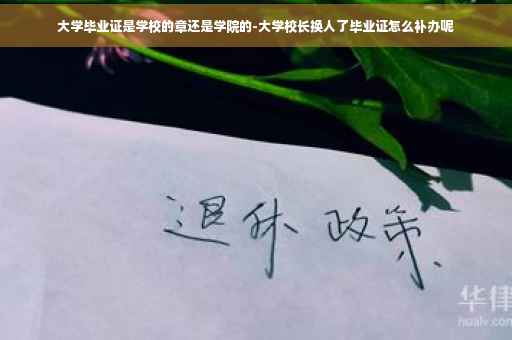 大学毕业证是学校的章还是学院的-大学校长换人了毕业证怎么补办呢
退休 政策
华律
hualv.com